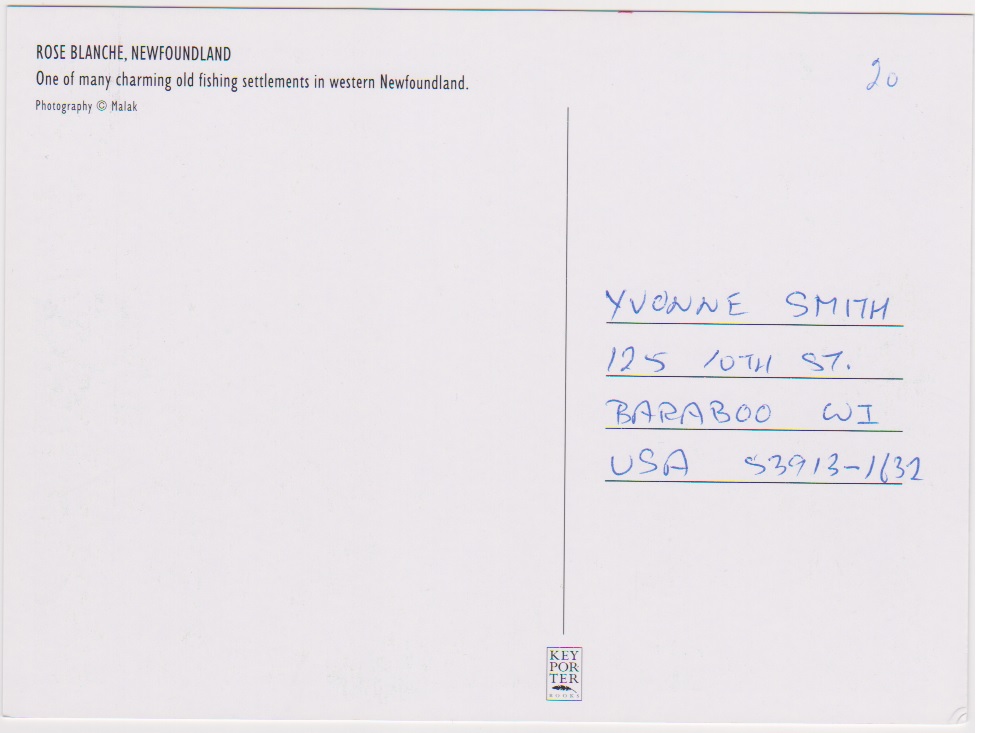 ROSE BLANCHE, NEWFOUNDLAND
One of many charming old fishing settlements in western Newfoundland.
Photography © Malak
20
YVONNE SMITH
125 10TH ST.
BARABOO WI
USA 53913-1632
KEY
POR
TER
BOOKS